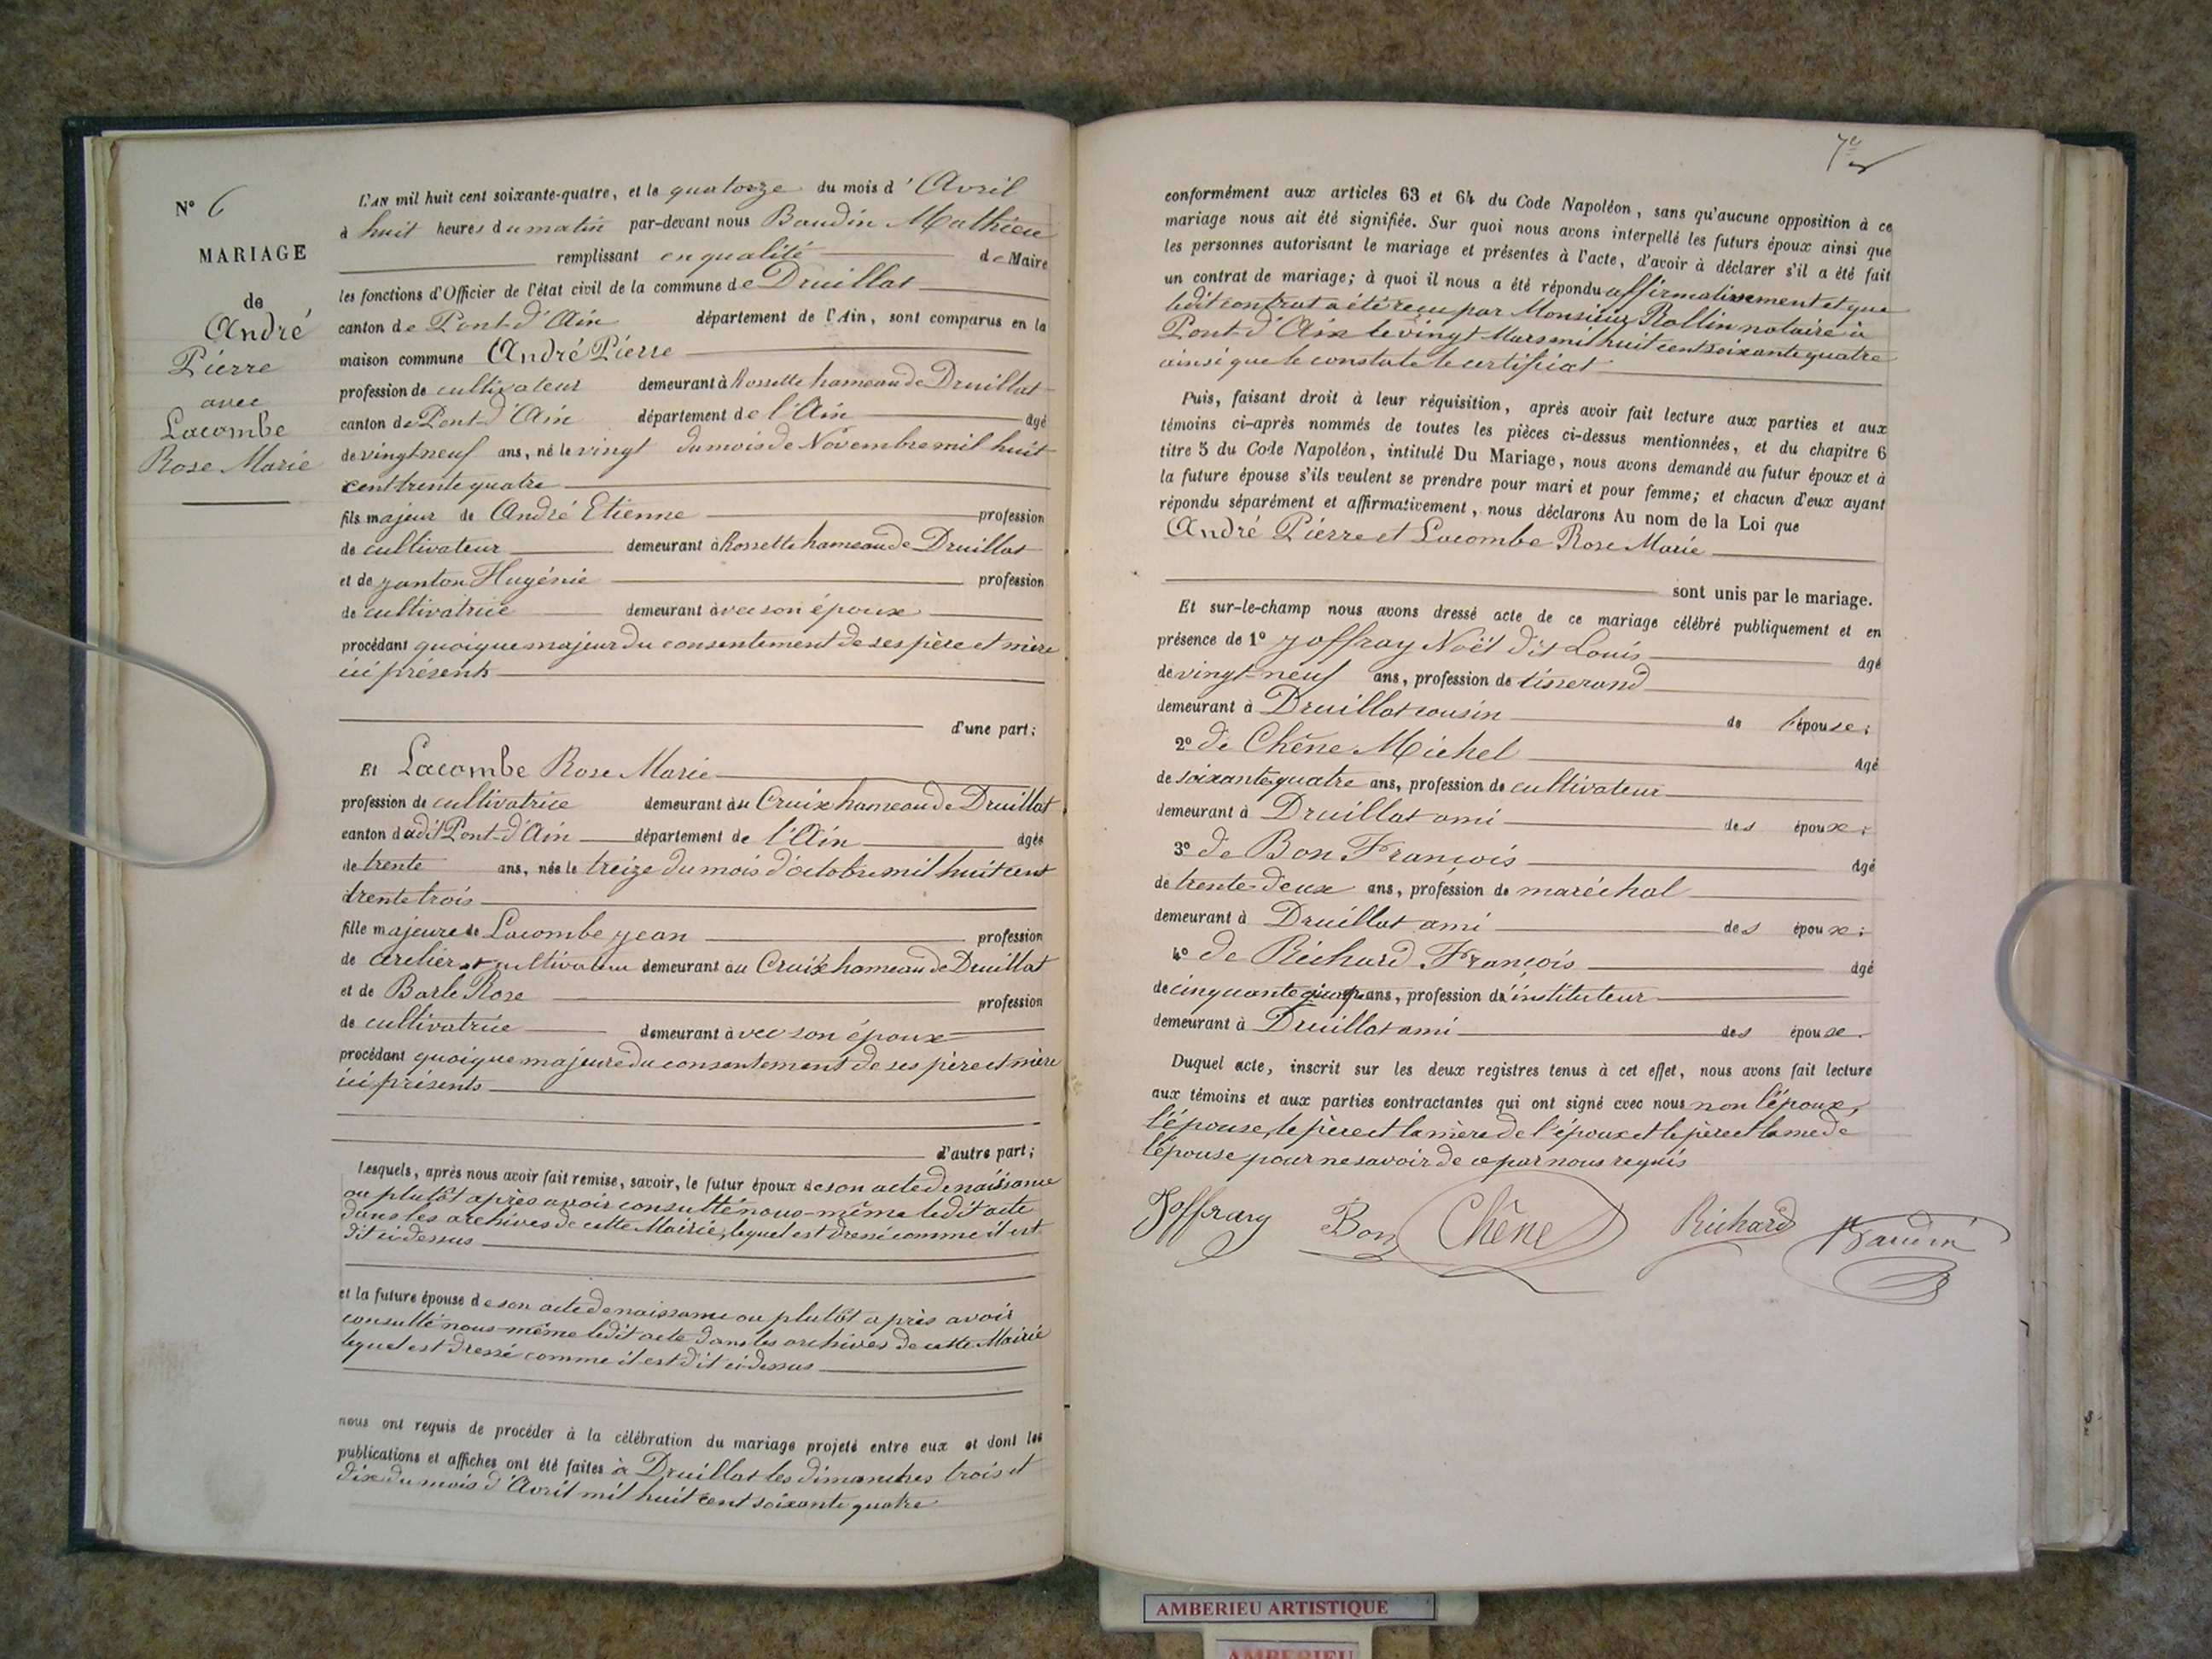 N° 6
MARIAGE
de
André
Pierre
avec
Lacombe
Rose Marie
L'AN mil huit cent soixante-quatre, et le quatorze du mois d'Avril
à huit heures du matin par-devant nous Baudin Mathieu
remplissant en qualité de Maire
les fonctions d'Officier de l'état civil de la commune de Druillat
canton de Pont-d'Ain département de l'Ain, sont comparus en la
maison commune André Pierre
profession de cultivateur demeurant à Rossette hameau de Druillat
canton de Pont-d'Ain département de l'Ain âgé
de vingt neuf ans, né le vingt du mois de Novembre mil huit
cent trente quatre
fils majeur de André Etienne profession
de cultivateur demeurant à Rossette hameau de Druillat
et de Hugénie profession
de cultivatrice demeurant avec son époux
procédant quoique majeur du consentement de ses père et mère
ici présents
d'une part;
Et Lacombe Rose Marie
profession de cultivatrice demeurant au Cruix hameau de Druillat
canton dudit Pont-d'Ain département de l'Ain âgée
de trente ans, née le treize du mois d'octobre mil huit cent
trente trois
fille majeure de Lacombe jean profession
de et cultivateur demeurant au Cruix hameau de Druillat
et de Barle Rose profession
de cultivatrice demeurant avec son époux
procédant quoique majeure du consentement de ses père et mère
ici présents
d'autre part;
Lesquels, après nous avoir fait remise, savoir, le futur époux de son acte de naissance
ou plutôt après avoir consulté nous-même ledit acte
dans les archives de cette Mairie, lequel est dressé comme il est
dit ci-dessus
et la future épouse de son acte de naissance ou plutôt après avoir
consulté nous-même ledit acte dans les archives de cette Mairie
lequel est dressé comme il est dit ci-dessus
nous ont requis de procéder à la célébration du mariage projeté entre eux et dont les
publications et affiches ont été faites à Druillat les dimanches trois et
dix du mois d'Avril mil huit cent soixante quatre
conformément aux articles 63 et 64 du Code Napoléon, sans qu'aucune opposition à ce
mariage nous ait été signifiée. Sur quoi nous avons interpellé les futurs époux ainsi que
les personnes autorisant le mariage et présentes à l'acte, d'avoir à déclarer s'il a été fait
un contrat de mariage; à quoi il nous a été répondu affirmativement et que
ledit contrat a été reçu par Monsieur Rollin notaire à
Pont-d'Ain le vingt Mars mil huit cent soixante quatre
ainsi que le constate le certificat
Puis, faisant droit à leur réquisition, après avoir fait lecture aux parties et aux
témoins ci-après nommés de toutes les pièces ci-dessus mentionnées, et du chapitre 6
titre 5 du Code Napoléon, intitulé Du Mariage, nous avons demandé au futur époux et à
la future épouse s'ils veulent se prendre pour mari et pour femme; et chacun d'eux ayant
répondu séparément et affirmativement, nous déclarons Au nom de la Loi que
André Pierre et Lacombe Rose Marie
sont unis par le mariage.
Et sur-le-champ nous avons dressé acte de ce mariage célébré publiquement et en
présence de 1° joffray Noël dit Louis âgé
de vingt-neuf ans, profession de tisserand
demeurant à Druillat cousin de l'épouse;
2° de Chêne Michel âgé
de soixante quatre ans, profession de cultivateur
demeurant à Druillat ami des époux;
3° de Bon François âgé
de trente-deux ans, profession de maréchal
demeurant à Druillat ami des époux;
4° de Richard François âgé
de cinquante ans, profession d'instituteur
demeurant à Druillat ami des époux.
Duquel acte, inscrit sur les deux registres tenus à cet effet, nous avons fait lecture
aux témoins et aux parties contractantes qui ont signé avec nous non l'époux,
l'épouse, le père et la mère de l'époux et le père et la me de
l'épouse pour ne savoir de ce par nous requis
Joffray Bon Chêne Richard Baudin
AMBERIEU ARTISTIQUE
AMBERIEU